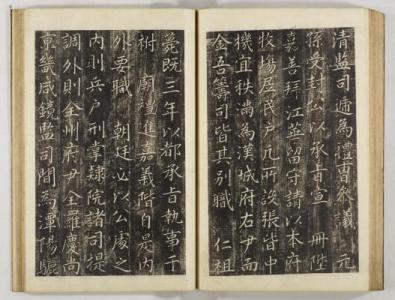 清監司遞為禮曹參議 元
孫受封公以承旨宣 冊陞
嘉善拜江華留守請以本府
牧場居民戶凡所設張皆中
機宜秩滿為漢城府右尹而
金吾籌司皆其別職 仁祖
薨既三年以都承旨執事于
祔 廟禮進嘉義階自是內
外要職 朝廷必以公處之
內則兵戶刑掌隷院諸司提
調外則全州府尹全羅慶尚
京畿咸鏡監司間為潭陽驪